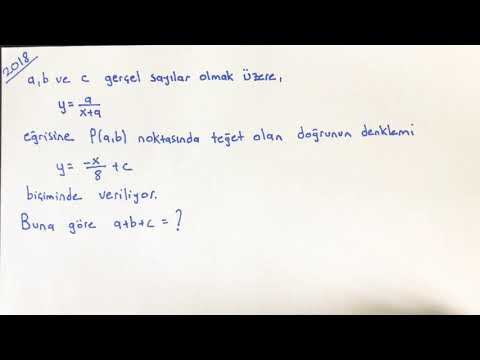 2018
a,b ve c gerçel sayılar olmak üzere,
y = a/(x+a)
eğrisine P(a,b) noktasında teğet olan doğrunun denklemi
y = -x/8 + c
biçiminde veriliyor.
Buna göre a+b+c = ?